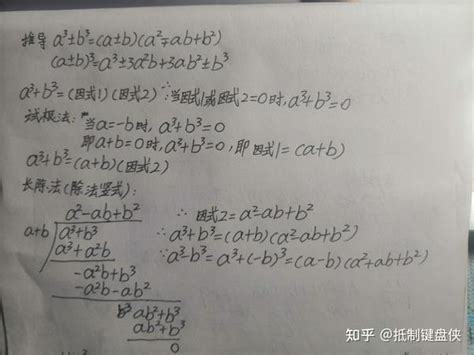 推导 a³±b³=(a±b)(a²∓ab+b²)
(a±b)³=a³±3a²b+3ab²±b³
a³+b³=(因式1)(因式2) ∵当因式1或因式2=0时,a³+b³=0
试根法: 当a=-b时, a³+b³=0
即a+b=0时,a³+b³=0, 即因式1=(a+b)
a³+b³=(a+b)(因式2)
长除法(除法竖式):
a²-ab+b² ∴ 因式2=a²-ab+b²
a+b a³+b³ ∴a³+b³=(a+b)(a²-ab+b²)
a³+a²b ∵a³-b³=a³+(-b)³=(a-b)(a²+ab+b²)
-a²b+b³
-a²b-ab²
ab²+b³
ab²+b³
0
知乎 @抵制键盘侠